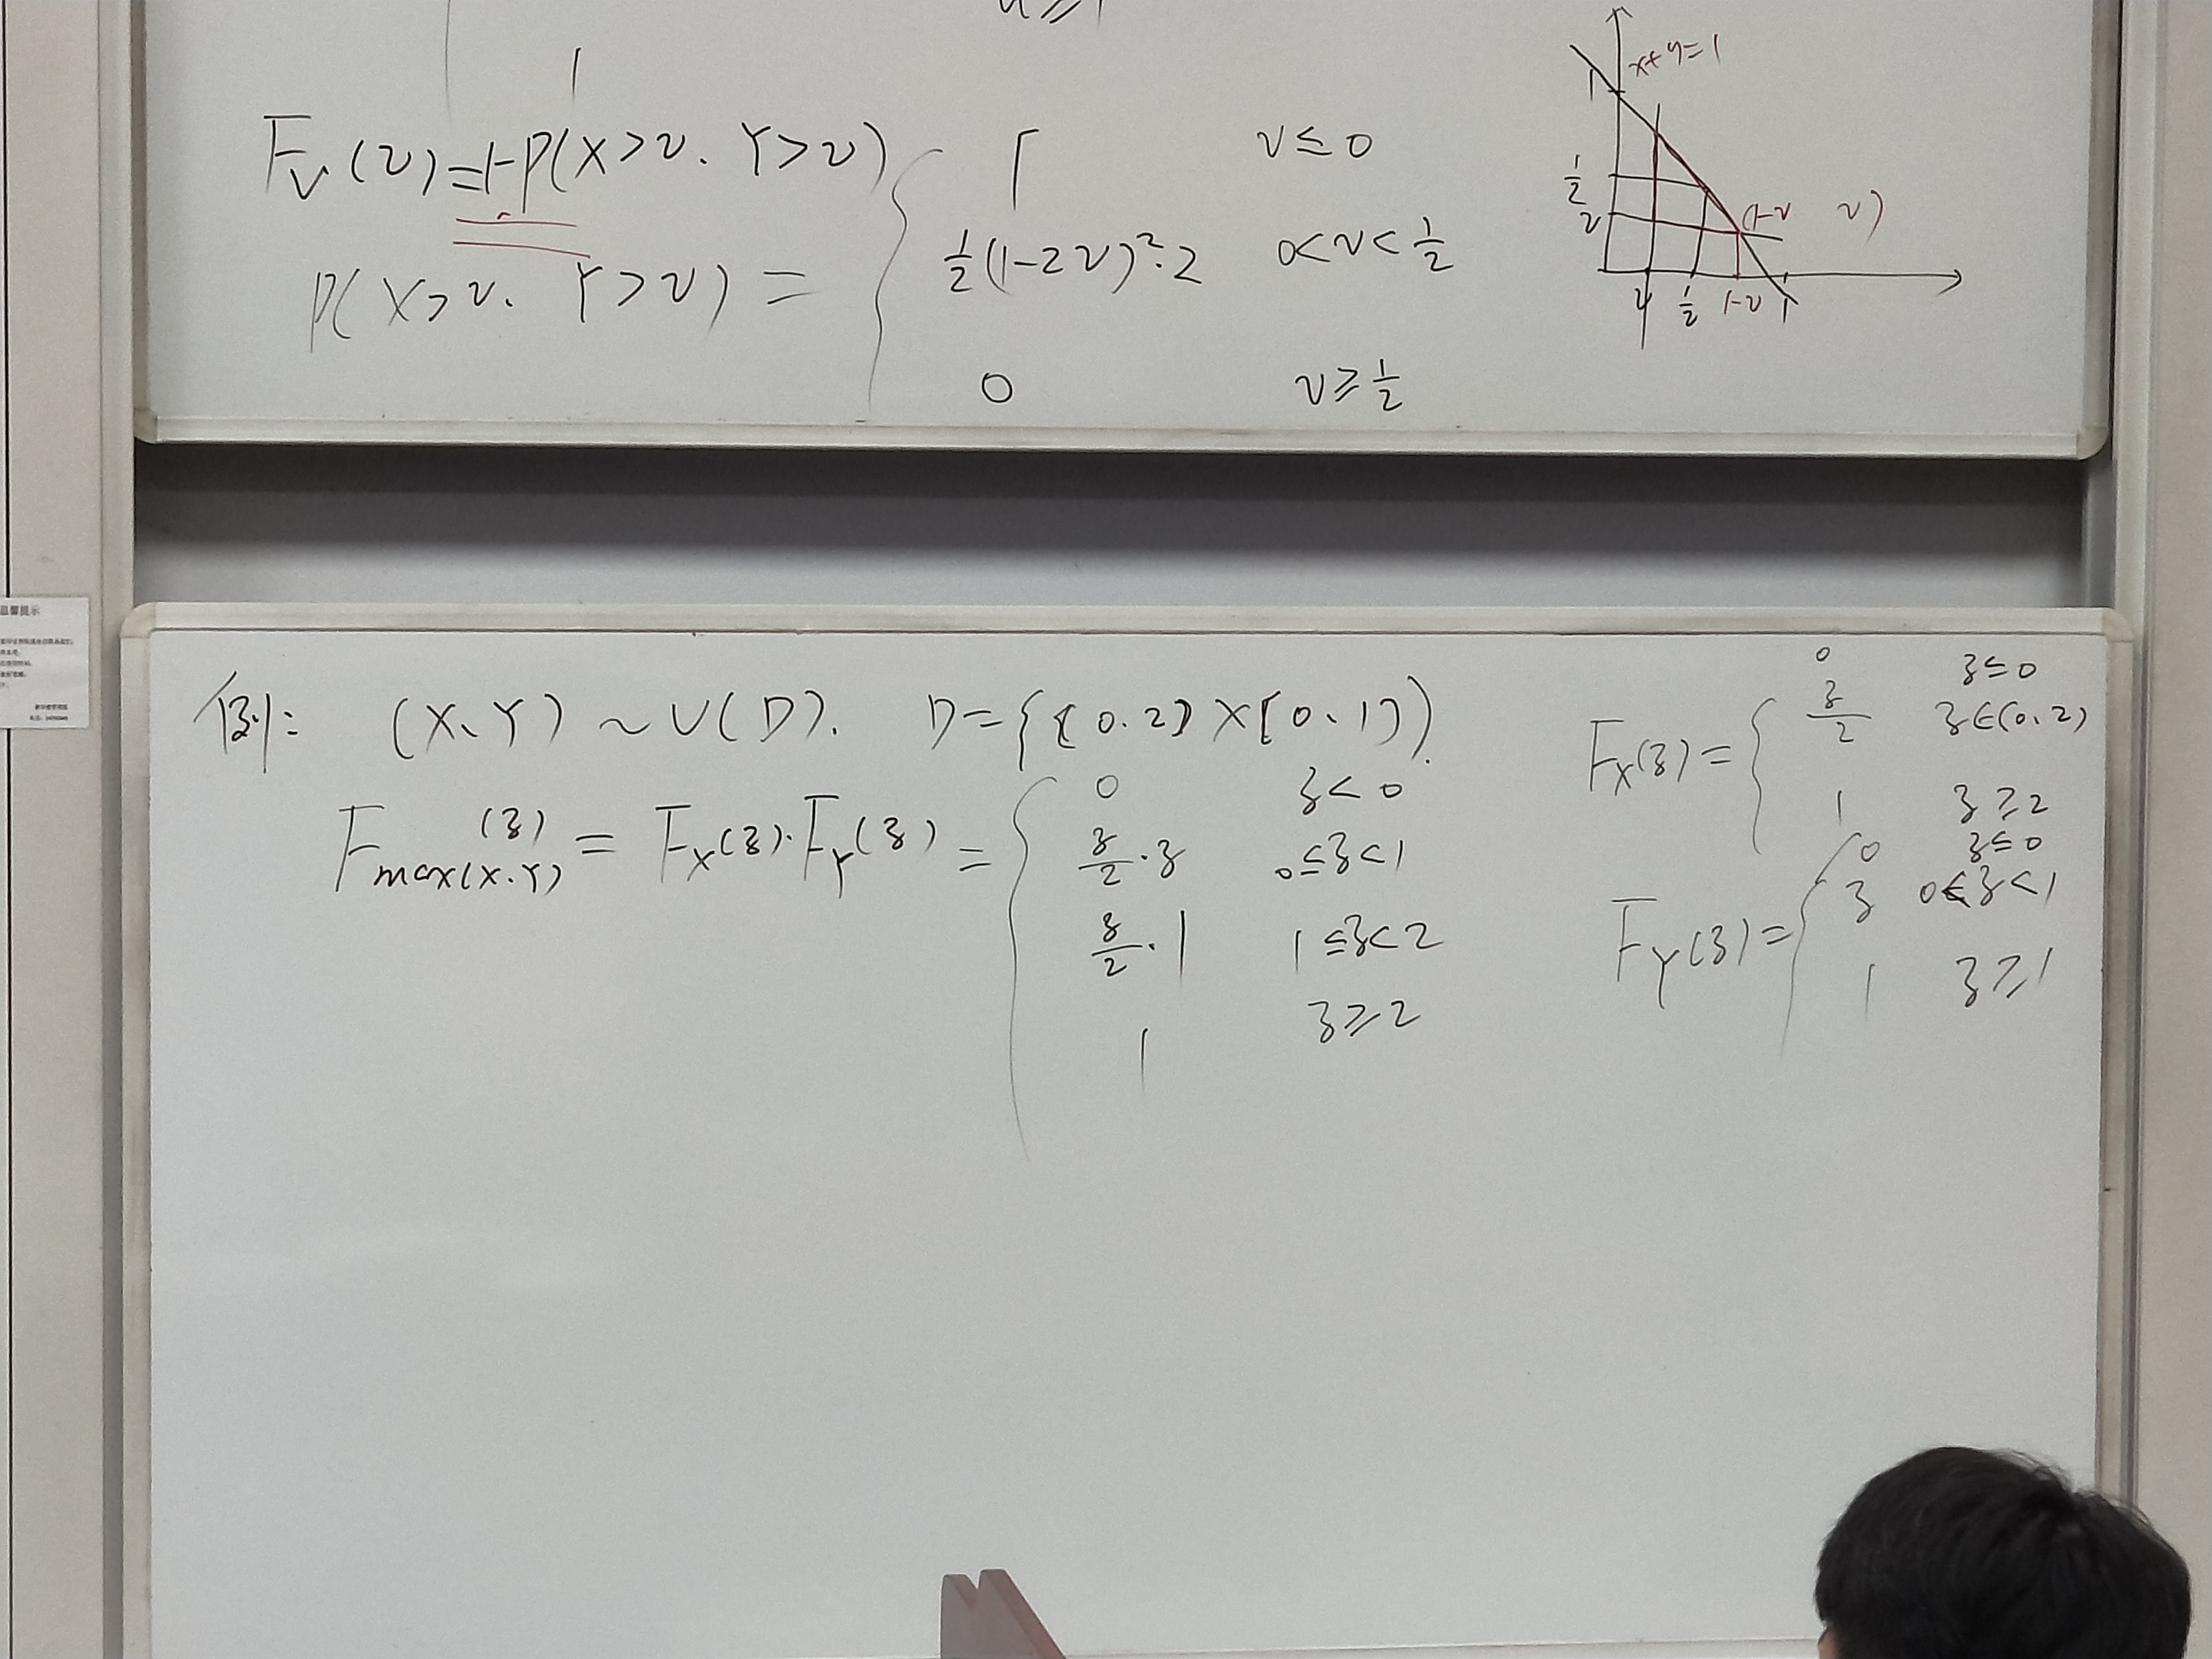 u ≥ 1
1
F_V(v) = 1-P(X>v. Y>v)
P(X>v. Y>v) = { 1 v≤0
½(1-2v)²·2 0<v<½
0 v≥½
x+y=1
1
½
v
(1-v v)
v ½ 1-v 1
例: (X、Y) ~ U(D). D={[0.2] × [0、1]}.
F_max(X.Y)(z) = F_X(z)·F_Y(z) = { 0 z<0
z/2·z 0≤z<1
z/2·1 1≤z<2
1 z≥2
F_X(z) = { 0 z≤0
z/2 z∈(0、2)
1 z≥2
F_Y(z) = { 0 z≤0
z 0<z<1
1 z≥1
温馨提示